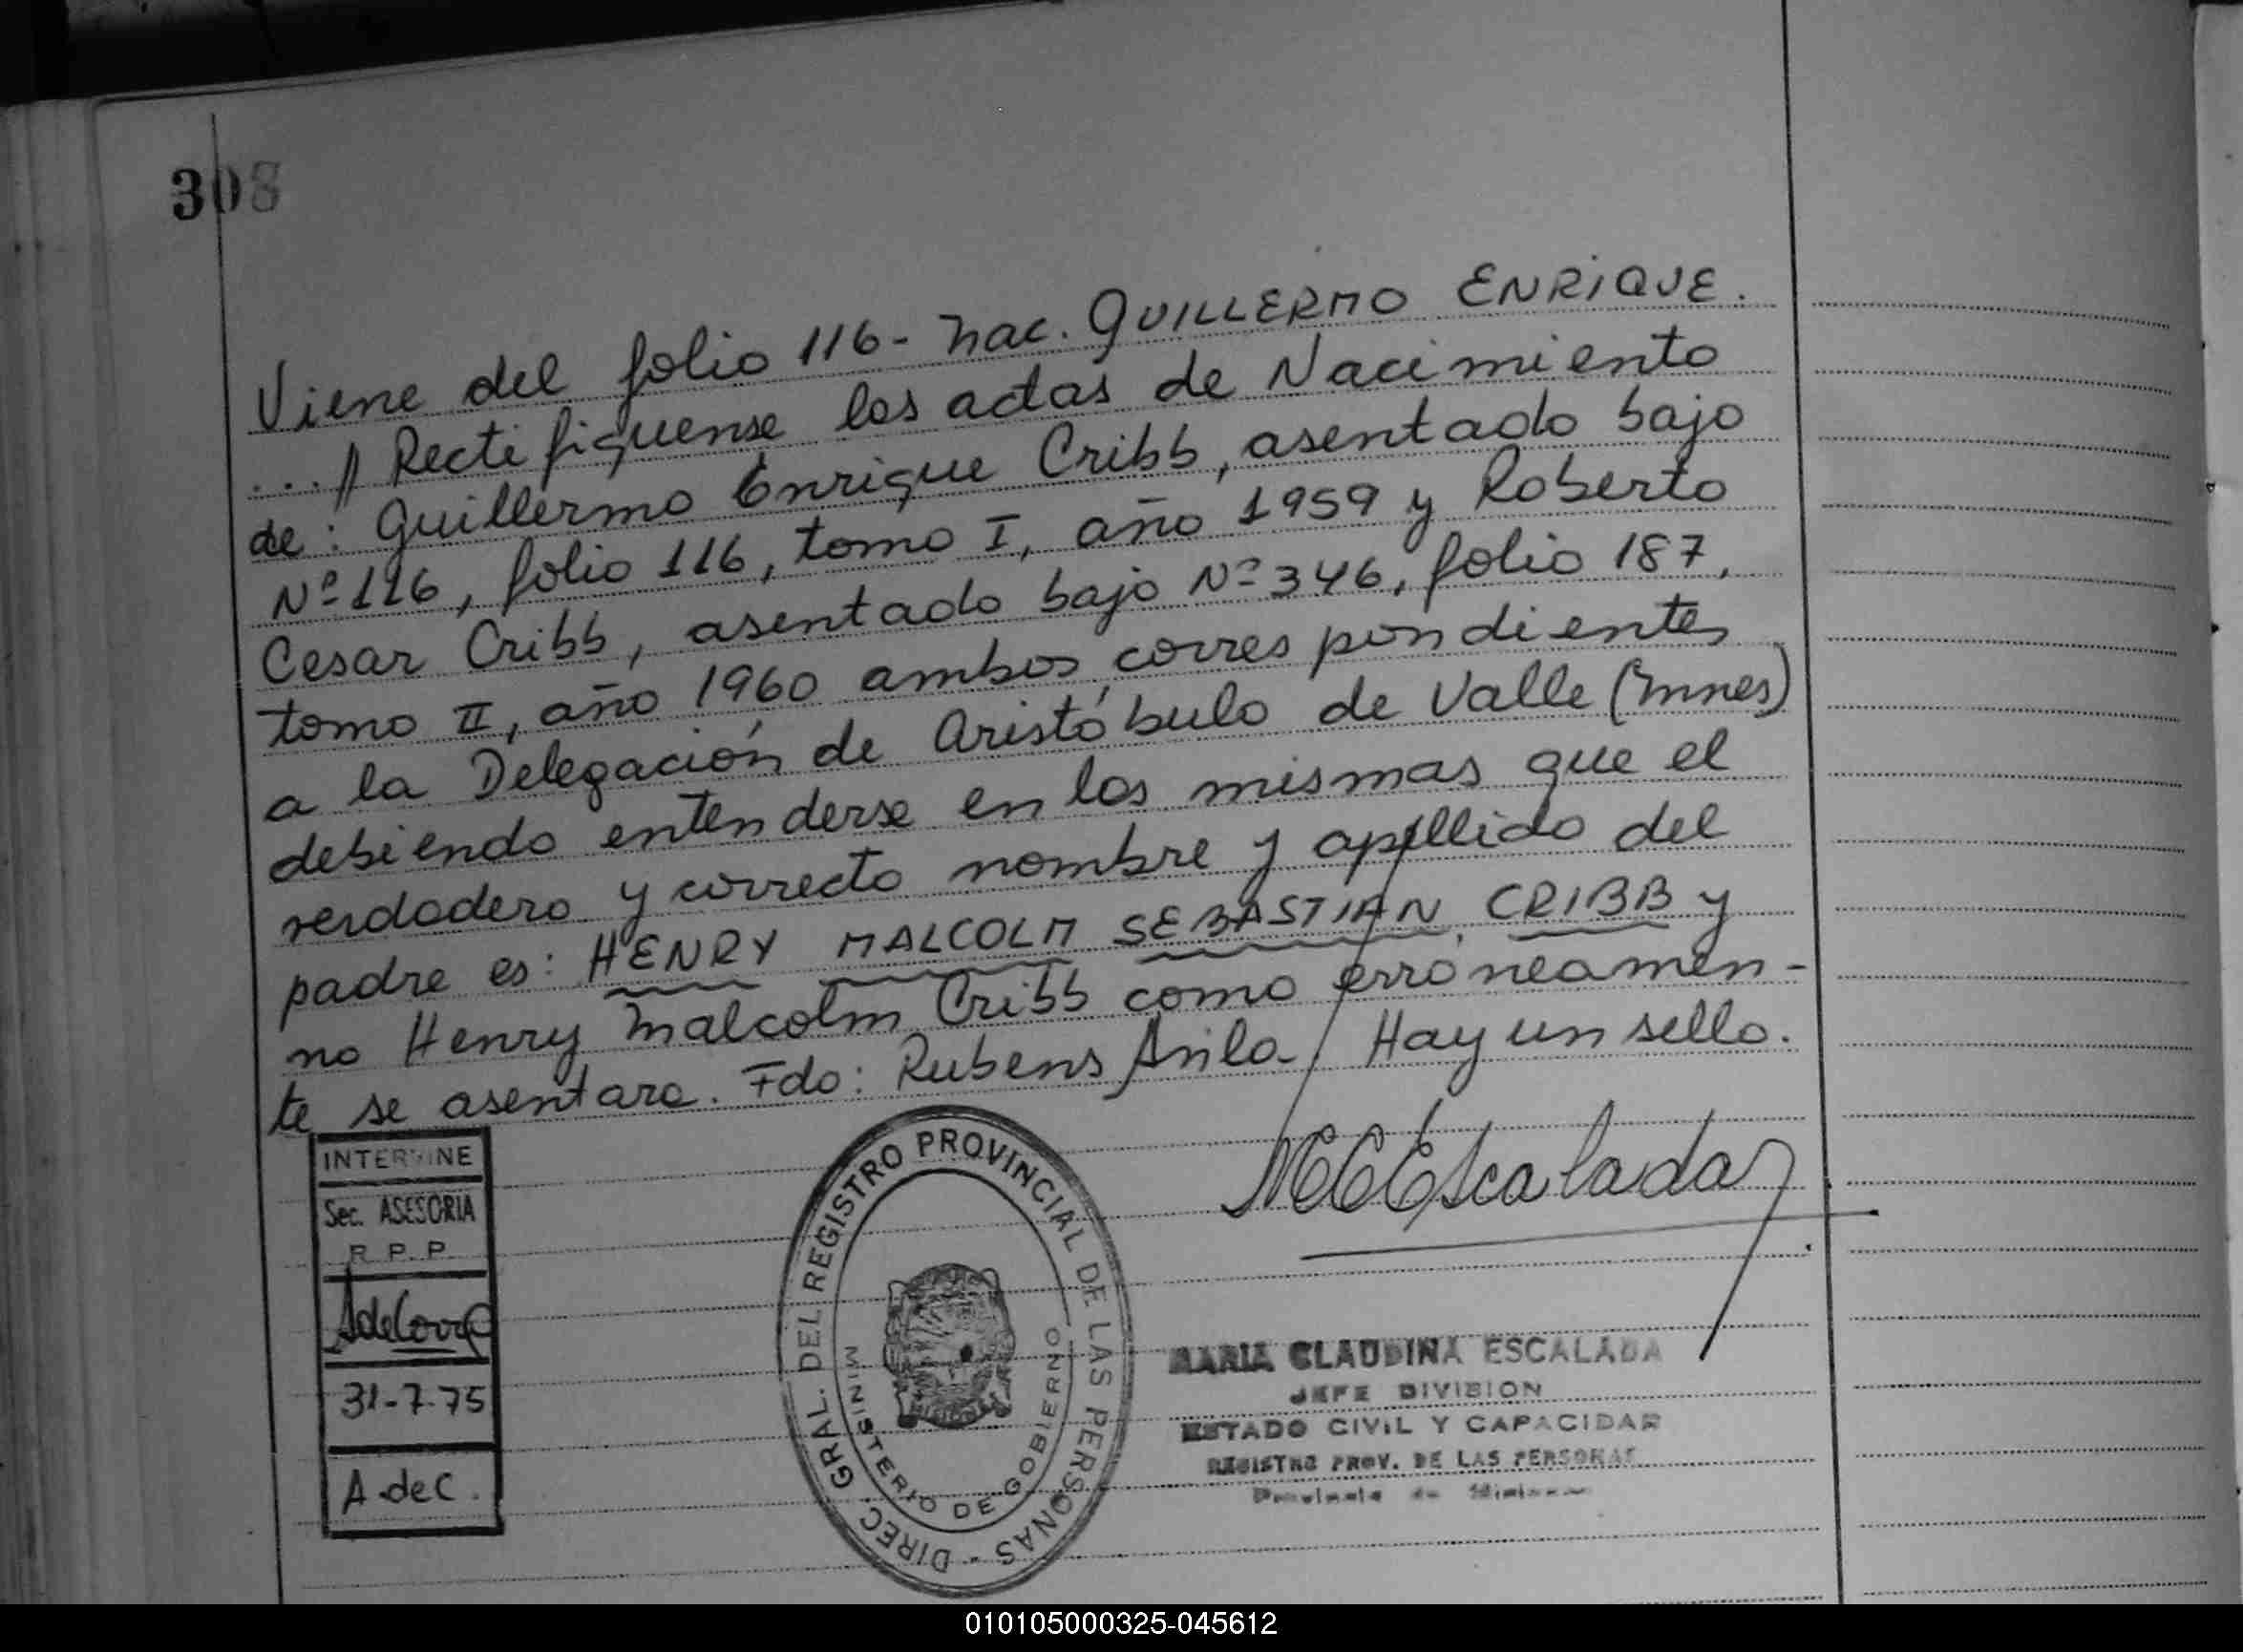 308
Viene del folio 116- Nac. GUILLERMO ENRIQUE.
...// Rectifiquense las actas de Nacimiento
de: Guillermo Enrique Cribb, asentado bajo
Nº 116, folio 116, tomo I, año 1959 y Roberto
Cesar Cribb, asentado bajo Nº 346, folio 187,
tomo II, año 1960 ambos correspondientes
a la Delegación de Aristóbulo de Valle (Mnes)
debiendo entenderse en las mismas que el
verdadero y correcto nombre y apellido del
padre es: HENRY MALCOLM SEBASTIAN CRIBB y
no Henry Malcolm Cribb como erróneamen-
te se asentara. Fdo: Rubens Avila. Hay un sello.
MCEscalada
INTERVINE
Sec. ASESORIA
R. P. P.
AdeCorro
31-7-75
A. de C.
DIREC. GRAL. DEL REGISTRO PROVINCIAL DE LAS PERSONAS -
MINISTERIO DE GOBIERNO
MARIA CLAUDINA ESCALADA
JEFE DIVISION
ESTADO CIVIL Y CAPACIDAD
REGISTRO PROV. DE LAS PERSONAS
Provincia de Misiones
010105000325-045612